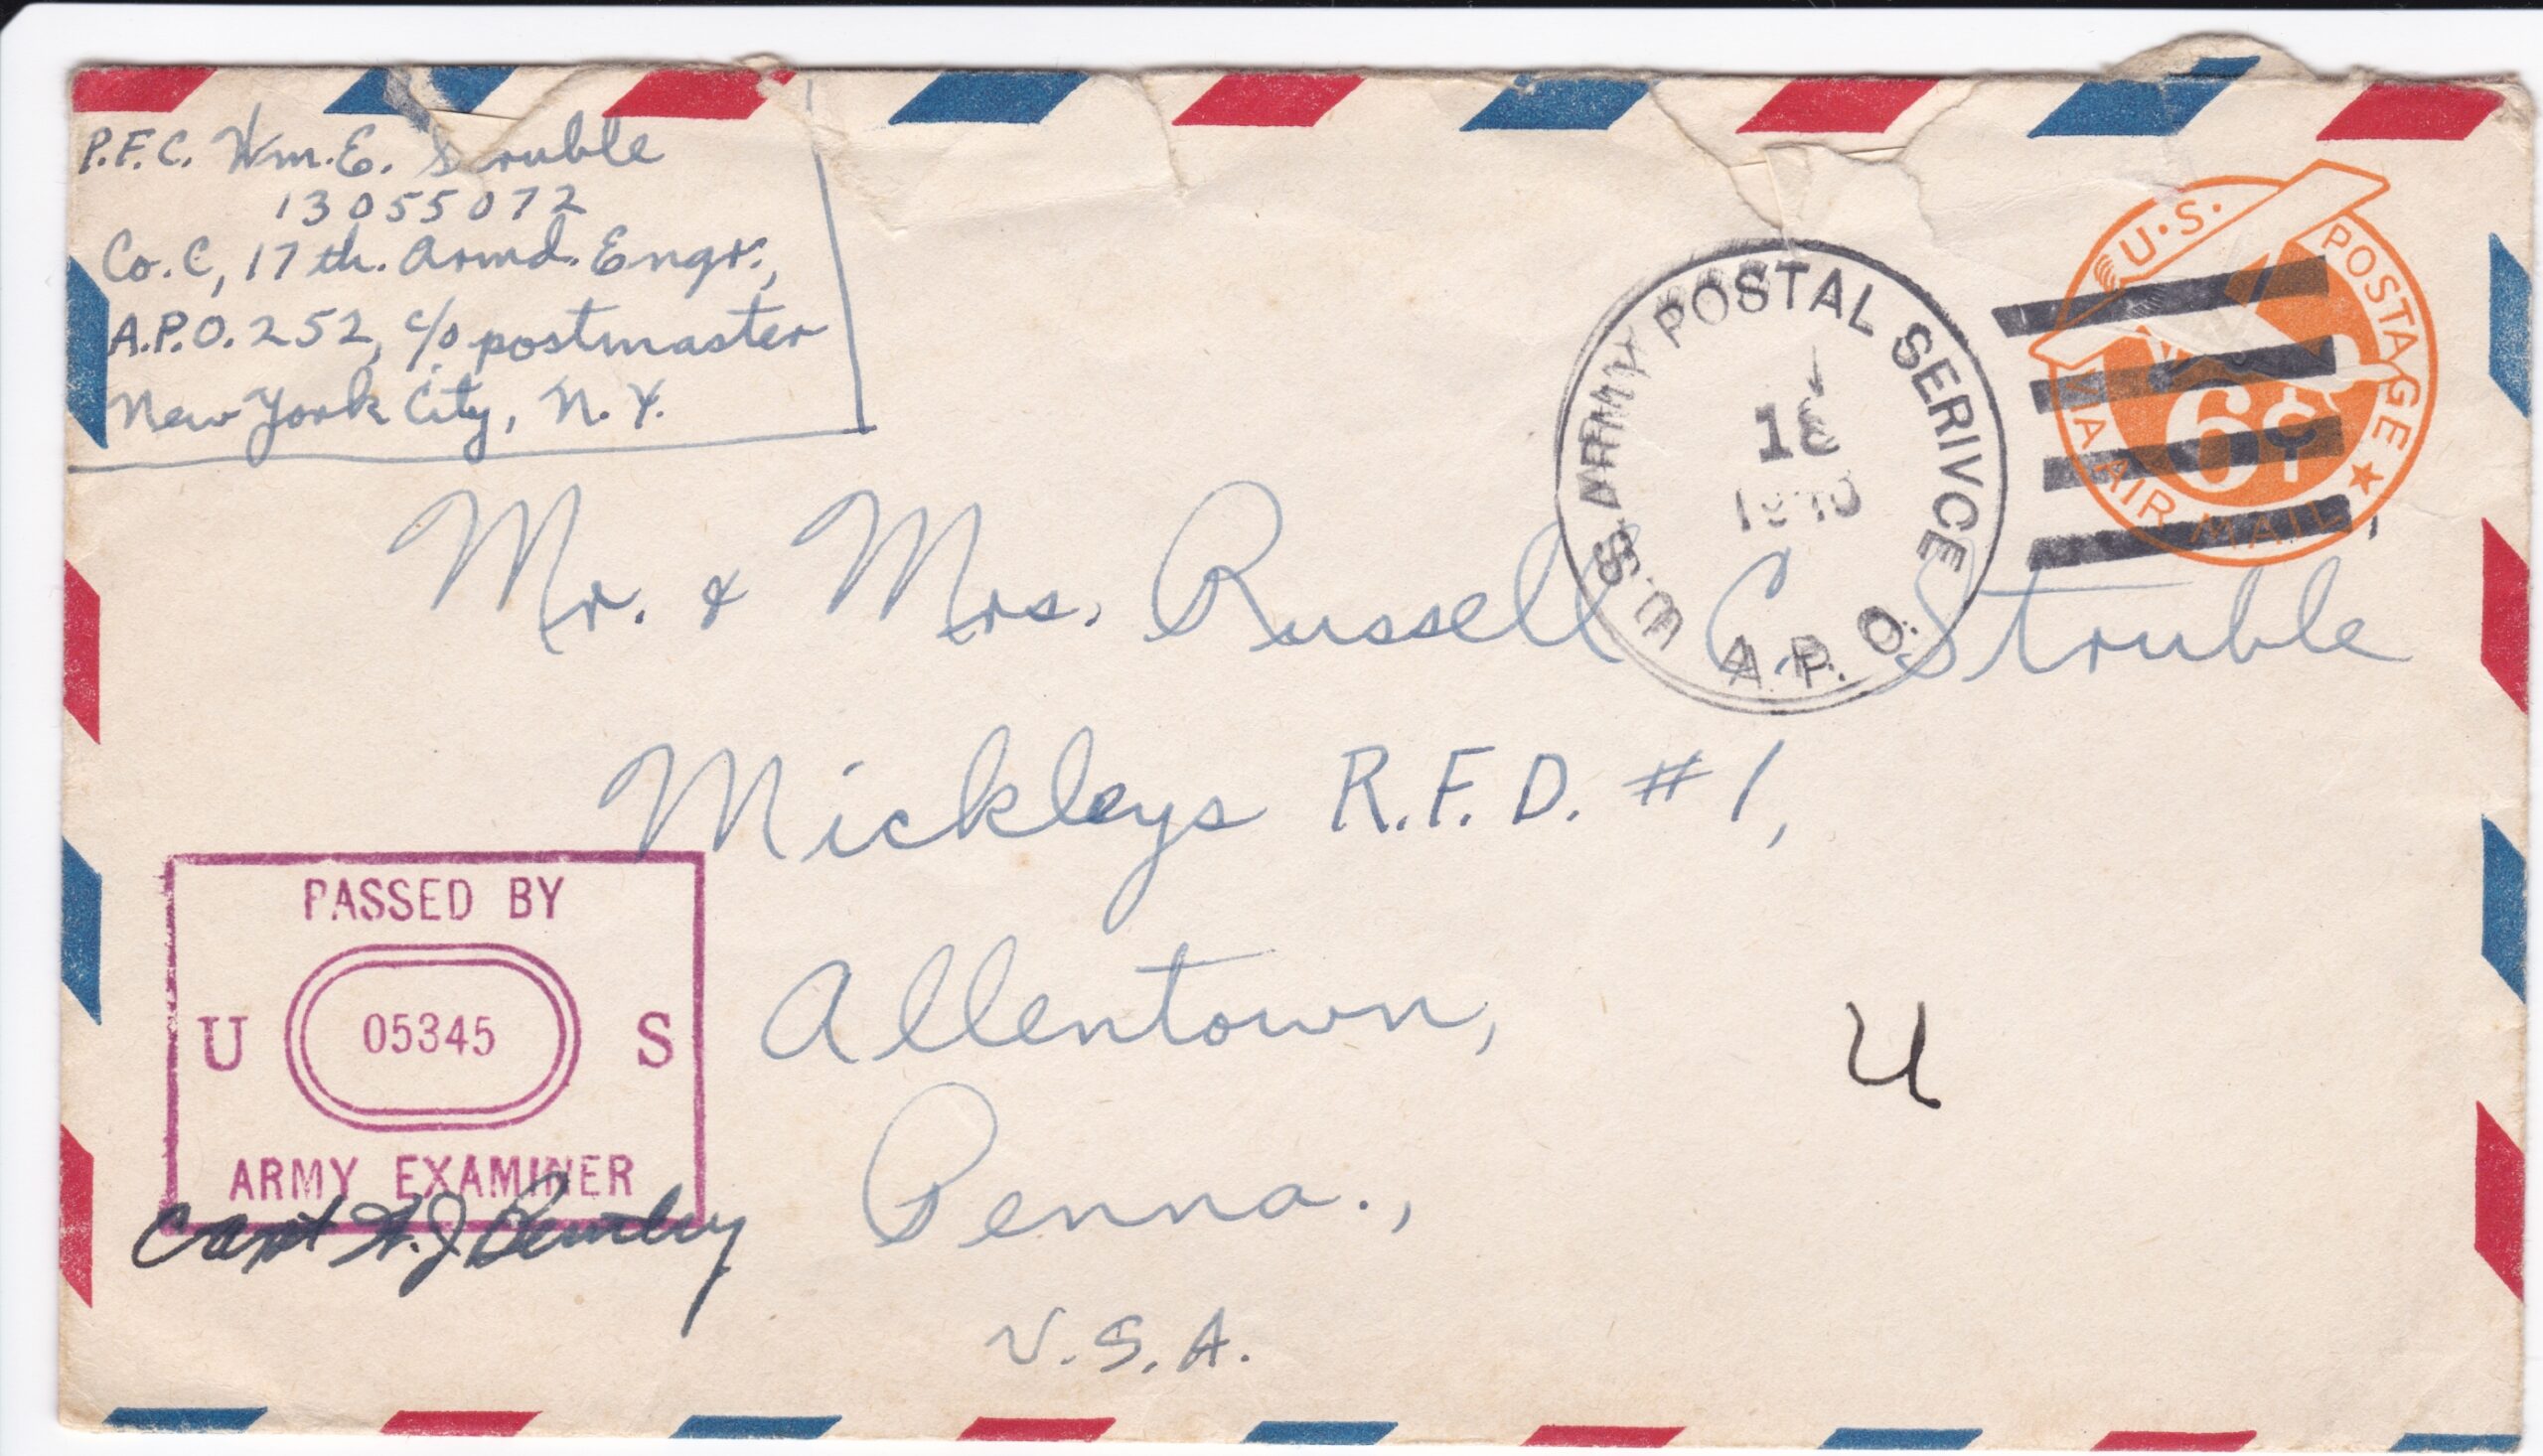 P.F.C. Wm. E. Struble
13055072
Co. C, 17th. Armd. Engr.,
A.P.O. 252, c/o postmaster
New York City, N.Y.
U.S. ARMY POSTAL SERIVCE
A.P.O.
U.S. POSTAGE
6¢
VIA AIR MAIL
Mr. & Mrs. Russell C. Struble
Mickleys R.F.D. #1,
Allentown,
Penna.,
U.S.A.
U
PASSED BY
U 05345 S
ARMY EXAMINER
Capt